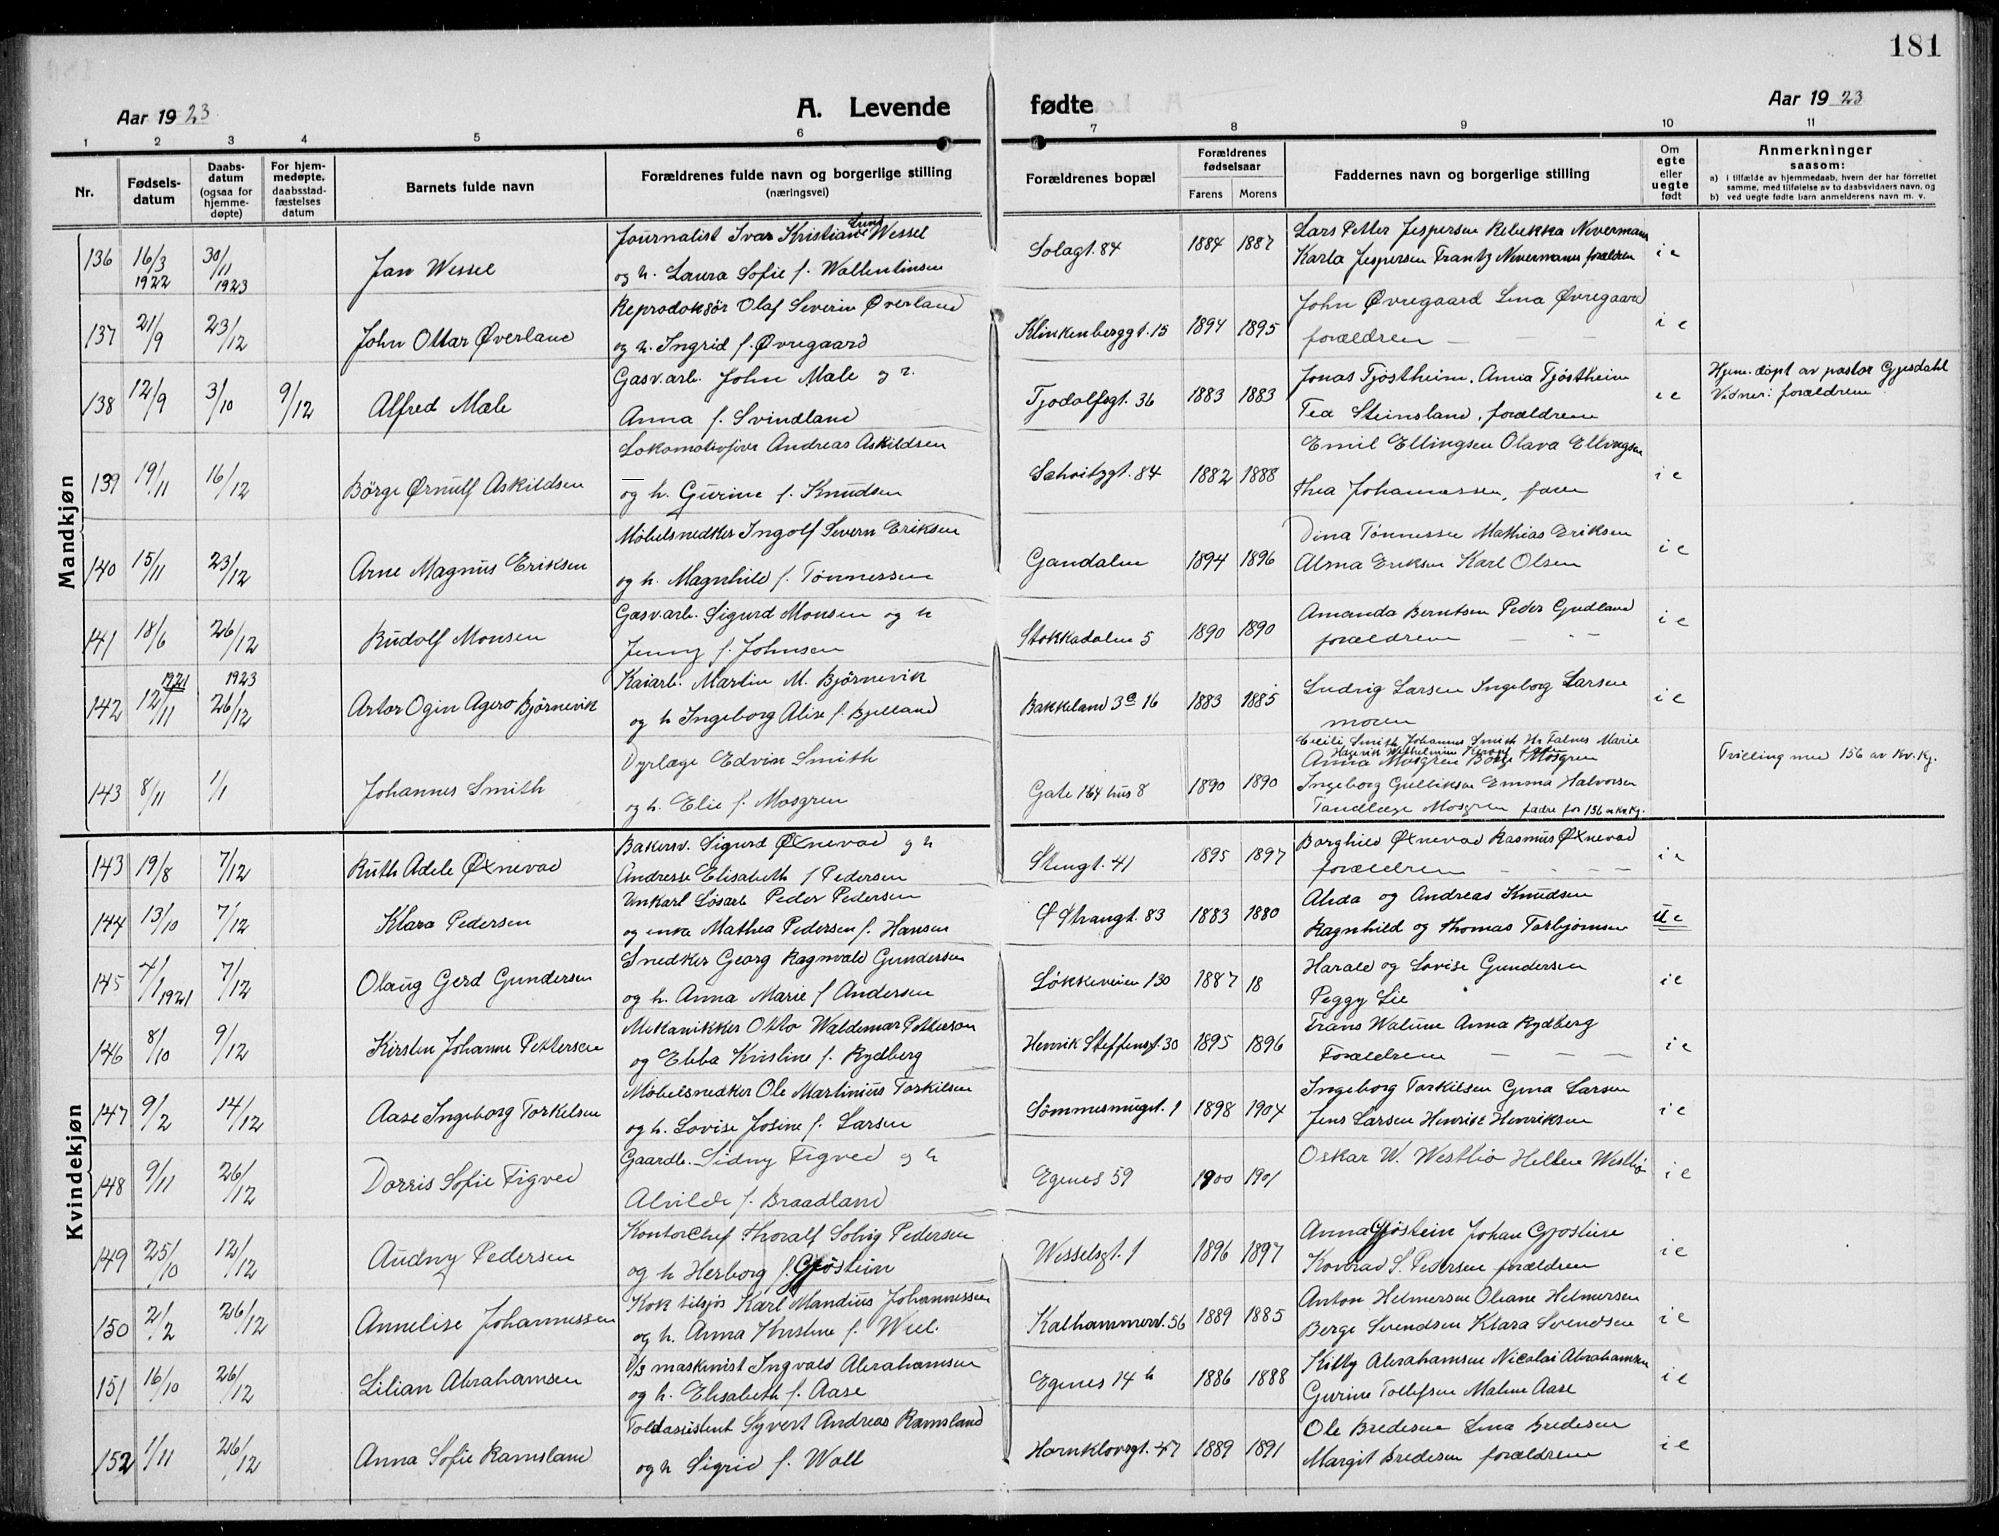 181
Aar 1923
A. Levende fødte
Aar 1923
1 2 3 4 5 6 7 8 9 10 11
Nr.
Fødsels-
datum
Daabs-
datum
(ogsaa for
hjemme-
døpte)
For hjem-
medøpte,
daabsstad-
fæstelses
datum
Barnets fulde navn
Forældrenes fulde navn og borgerlige stilling
(næringsvei)
Forældrenes bopæl
Forældrenes
fødselsaar
Farens Morens
Faddernes navn og borgerlige stilling
Om
egte
eller
uegte
født
Anmerkninger
saasom:
a) i tilfælde av hjemmedaab, hvem der har forrettet
samme, med tilføielse av to daabsvidners navn, og
b) ved uegte fødte barn anmelderens navn m. v.
Mandkjøn
136 16/3 1922 30/11 1923 Jan Wessel
Journalist Ivar Kristian Lund Wessel
og h. Laura Sofie f. Wallentinsen
Solagt. 84 1884 1887
Lars Petter Jespersen Rebekka Nevermann
Karla Jespersen Frantz Nevermanns forældren
i e
137 21/9 23/12 John Ottar Øverland
Reprodoksør Olaf Severin Øverland
og h. Ingrid f. Øvregaard
Klinkenberggt. 15 1894 1895
John Øvregaard Lina Øvregaard
forældren — — —
i e
138 12/9 3/10 9/12 Alfred Mæle
Gasv.arb. John Mæle og h.
Anna f. Svindland
Tjodolfsgt. 36 1883 1883
Jonas Tjøstheim, Anna Tjøstheim
Tea Steinsland, forældrene
e e
Hjem.døpt av pastor Gjesdahl
Vidner: forældrene
139 19/11 16/12 Børge Ørnulf Askildsen
Lokomotivfører Andreas Askildsen
og h. Gurine f. Knudsen
Schwitzgt. 84 1882 1888
Emil Ellingsen Olava Ellingsen
Thea Johannessen, faren
i e
140 15/11 23/12 Arne Magnus Eriksen
Møbelsnedker Ingolf Severn Eriksen
og h. Magnhild f. Tønnessen
Gandalen 1894 1896
Dina Tønnessen Mathias Eriksen
Alma Eriksen Karl Olsen
i e
141 18/6 26/12 Rudolf Monsen
Gasv.arb. Sigurd Monsen og h
Jenny f. Johnsen
Stokkadalen 5 1890 1890
Amanda Berntsen Peder Gudland
forældrene — - -
i e
142 1921 12/11 1923 26/12 Artor Ogin Agero Bjørnevik
Kaiarb. Martin M. Bjørnevik
og h Ingeborg Alise f. Bjelland
Bakkeland 3 c 16 1883 1885
Ludvig Larsen Ingeborg Larsen
moren
i e
143 8/11 1/1 Johannes Smith
Dyrlæge Edvin Smith
og h. Elie f. Mosgren
Gate 164 hus 8 1890 1890
Cecili Smith Johannes Smith Hr Falnes Marie
Anna Mosgren Børge Mosgren
Ingeborg Gulliksen Emma Halvorsen
Tandlæge Mosgren fadre for 156 av kv.kj.
Tvilling med 156 av Kv. Kj.
Kvindekjøn
143 19/8 7/12 Ruth Adele Øxnevad
Bakersv. Sigurd Øxnevad og h
Andresse Elisabeth f Pedersen
Stengt. 41 1895 1897
Borghild Øxnevad Rasmus Øxnevad
forældren — — —
i e
144 13/10 7/12 Klara Pedersen
Unkarl Løsarb Peder Pedersen
og enke Mathea Pedersen f. Hansen
Ø Strangt. 83 1883 1880
Alida og Andreas Knudsen
Ragnhild og Thomas Torbjørnsen
U e
145 7/1 1921 7/12 Olaug Gerd Gundersen
Snedker Georg Ragnvald Gundersen
og h. Anna Marie f Andersen
Løkkeveien 130 1887 18
Harald og Lovise Gundersen
Peggy Lie
i e
146 8/10 9/12 Kirsten Johanne Pettersen
Mekanikker Otto Waldemar Petterson
og Ebba Kristine f. Rydberg
Henrik Steffensgt. 30 1895 1896
Frans Walum Anna Rydberg
Forældrene — — —
i e
147 9/2 14/12 Aase Ingeborg Torkelsen
Møbelsnedker Ole Martinius Torkilsen
og h. Lovise Josine f. Larsen
Sømmesmugt. 1 1898 1904
Ingeborg Torkilsen Gina Larsen
Jens Larsen Henrik Henriksen
i e
148 9/11 26/12 Dorris Sofie Figved
Gaardb. Sidny Figved og h
Alvilde f. Braadland
Egenes 59 1900 1901
Oskar W. Westbø Hellene Westbø
i e
149 25/10 12/12 Audny Pedersen
Kontorchef Thoralf Solvig Pedersen
og h Herborg f. Gjøstein
Wesselsgt. 1 1896 1897
Anna Gjøstein Johan Gjøstein
Konrad S. Pedersen forældren
i e
150 2/2 26/12 Annelise Johannessen
Kok tilsjøs Karl Mandius Johannessen
og h. Anna Kristine f. Weel.
Kalhammerv. 56 1889 1885
Anton Helmersen Oliane Helmersen
Berge Svendsen Klara Svendsen
i e
151 16/10 26/12 Lilian Abrahamsen
D/S maskinist Ingvald Abrahamsen
og h. Elisabeth f. Aase
Egenes 14 b 1886 1888
Kitty Abrahamsen Nicolai Abrahamsen
Gurine Tollefsen Maline Aase
i e
152 1/11 26/12 Anna Sofie Ramsland
Toldassistent Syvert Andreas Ramsland
og h Sigrid f. Wall
Hornklovsgt. 47 1889 1891
Ole Bredesen Lina Bredesen
Margit Bredesen forældrene
i e